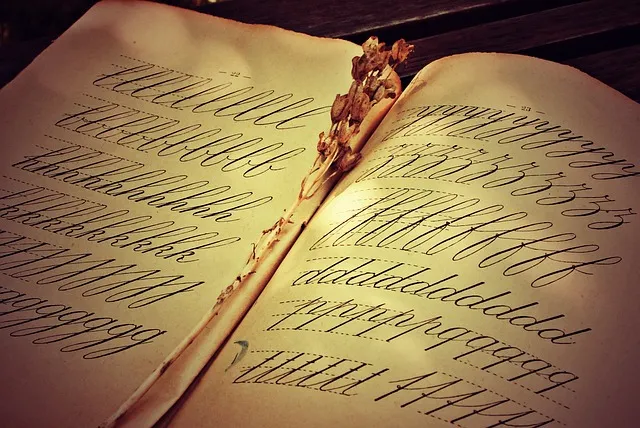 — 22 —
llllllllllll
bbbbbbbbbb
hhhhhhhhhh
kkkkkkkkkk
jjjjjjjjjj
gggggggggg
— 23 —
yyyyyyyyyyyy
zzzzzzzzzzzz
ffffffffffff
ddddddddddddd
pppppppqqqqqq
tttttttt